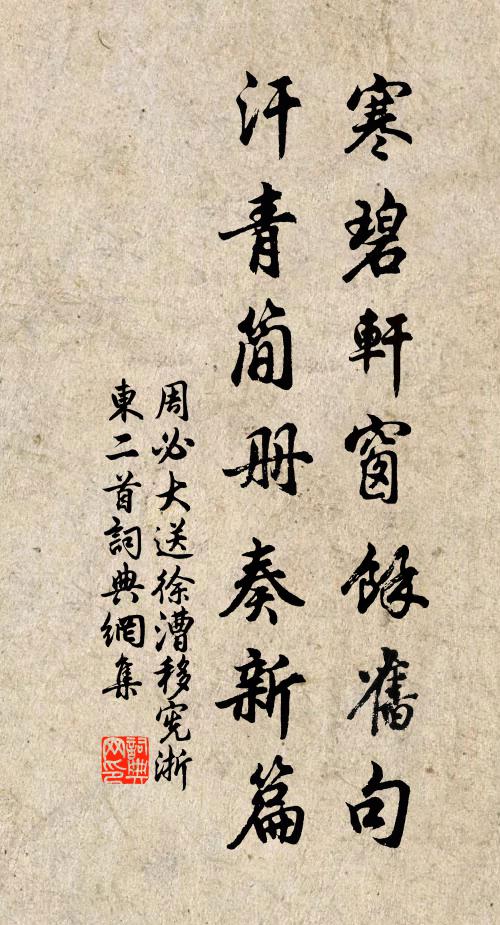 寒碧軒窗餘舊句
汗青简册奏新篇
周必大送徐漕移宪浙
東二首詞典網集
詞典网印